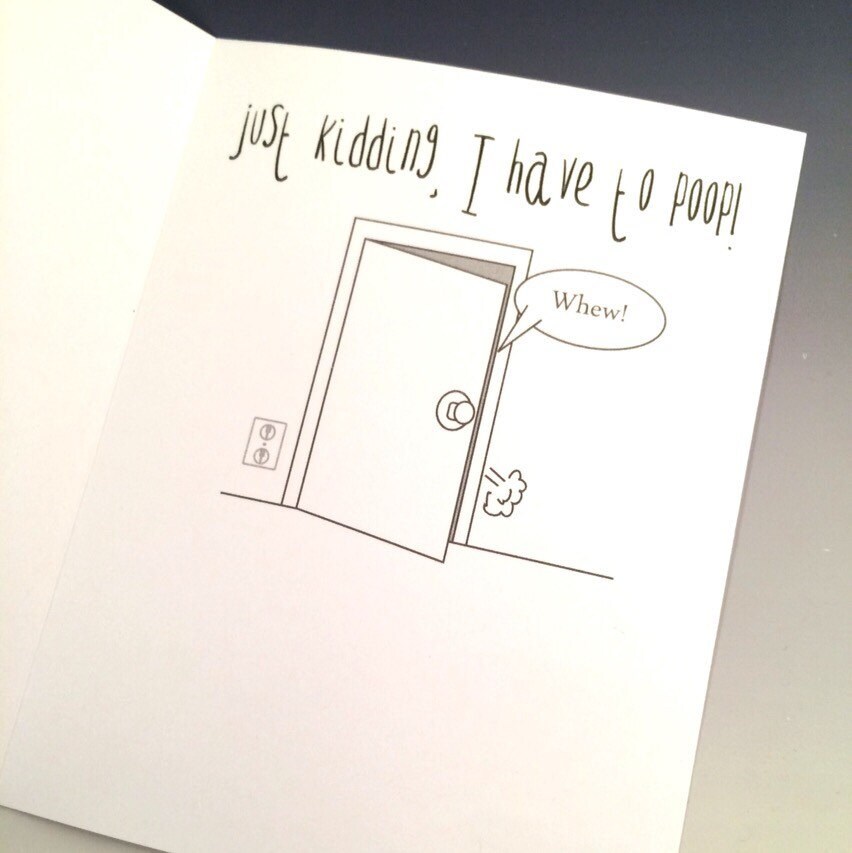 just kidding, I have to poop!
Whew!